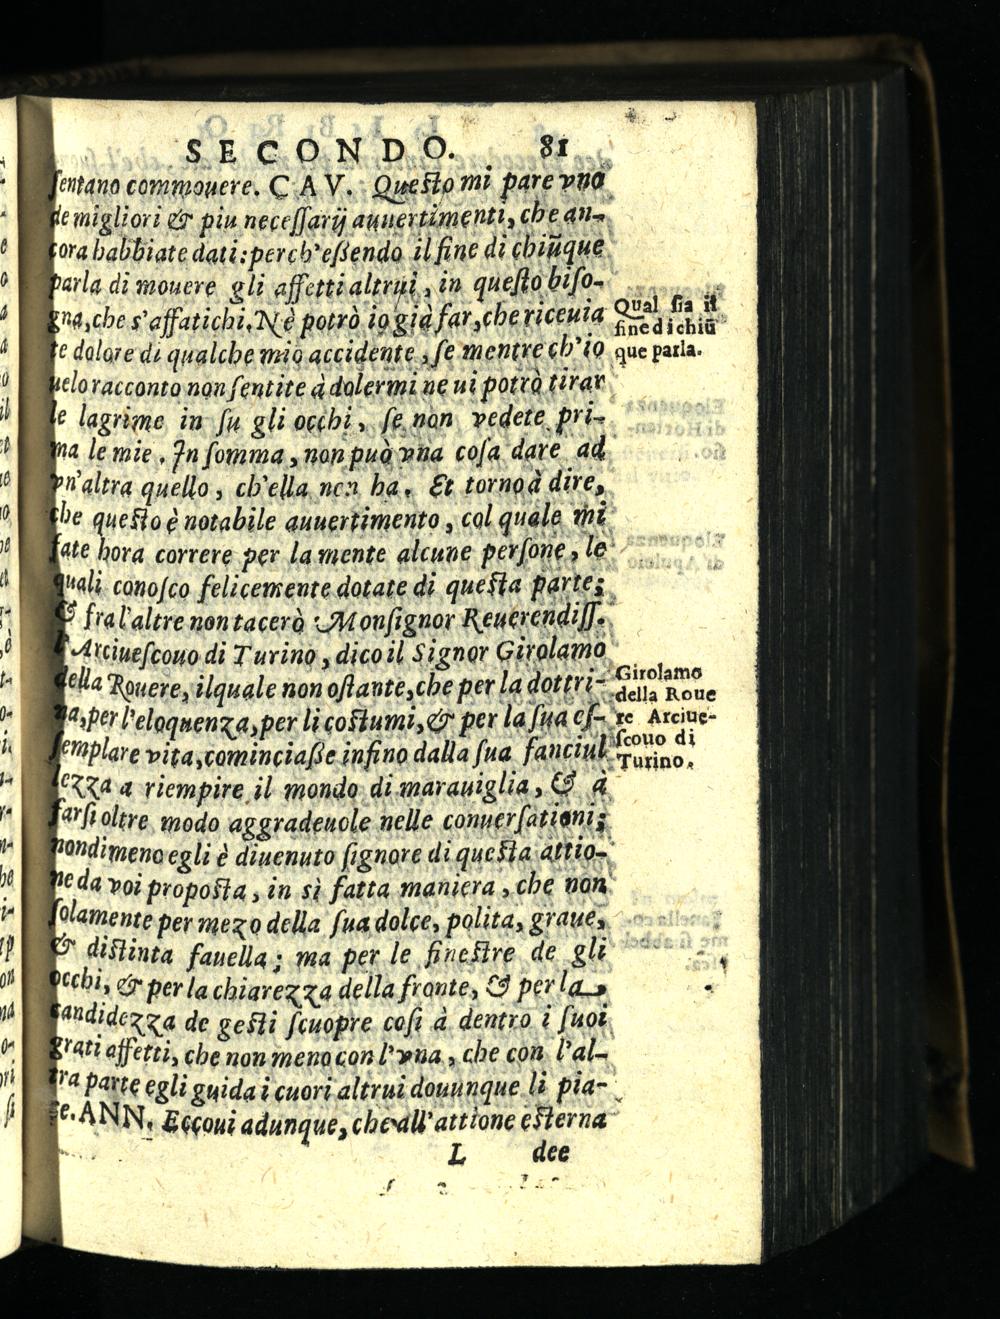 SECONDO. 81
sentano commouere. CAV. Questo mi pare vno
de migliori & piu necessarij auuertimenti, che an-
cora habbiate dati: perch'essendo il fine di chiũque
parla di mouere gli affetti altrui, in questo biso-
gna, che s'affatichi. Nè potrò io già far, che riceuia
te dolore di qualche mio accidente, se mentre ch'io
uelo racconto non sentite à dolermi ne ui potrò tirar
le lagrime in su gli occhi, se non vedete pri-
ma le mie. In somma, non può vna cosa dare ad
vn'altra quello, ch'ella non ha. Et torno à dire,
che questo è notabile auuertimento, col quale mi
fate hora correre per la mente alcune persone, le
quali conosco felicemente dotate di questa parte;
& fra l'altre non tacerò Monsignor Reuerendiss.
l'Arciuescouo di Turino, dico il Signor Girolamo
della Rouere, ilquale non ostante, che per la dottri-
na, per l'eloquenza, per li costumi, & per la sua es-
semplare vita, cominciasse infino dalla sua fanciul
lezza a riempire il mondo di marauiglia, & à
farsi oltre modo aggradeuole nelle conuersationi;
nondimeno egli è diuenuto signore di questa attio-
ne da voi proposta, in sì fatta maniera, che non
solamente per mezo della sua dolce, polita, graue,
& distinta fauella; ma per le finestre de gli
occhi, & per la chiarezza della fronte, & per la
candidezza de gesti scuopre così à dentro i suoi
grati affetti, che non meno con l'vna, che con l'al-
tra parte egli guida i cuori altrui douunque li pia-
ce. ANN. Eccoui adunque, che all'attione esterna
L dee
Qual sia il
fine di chiũ
que parla.
Girolamo
della Roue
re Arciue-
scouo di
Turino.